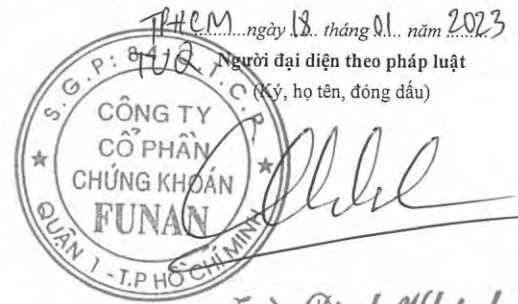 TPHCM ngày 18 tháng 01 năm 2023
TUQ. Người đại diện theo pháp luật
(Ký, họ tên, đóng dấu)
CÔNG TY
CỔ PHẦN
CHỨNG KHOÁN
FUNAN
QUẬN 1 - T.P HỒ CHÍ MINH